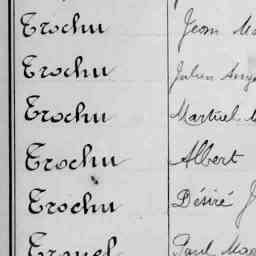 Trochu Jean
Trochu Julien
Trochu Martial
Trochu Albert
Trochu Désiré
Trouel Paul